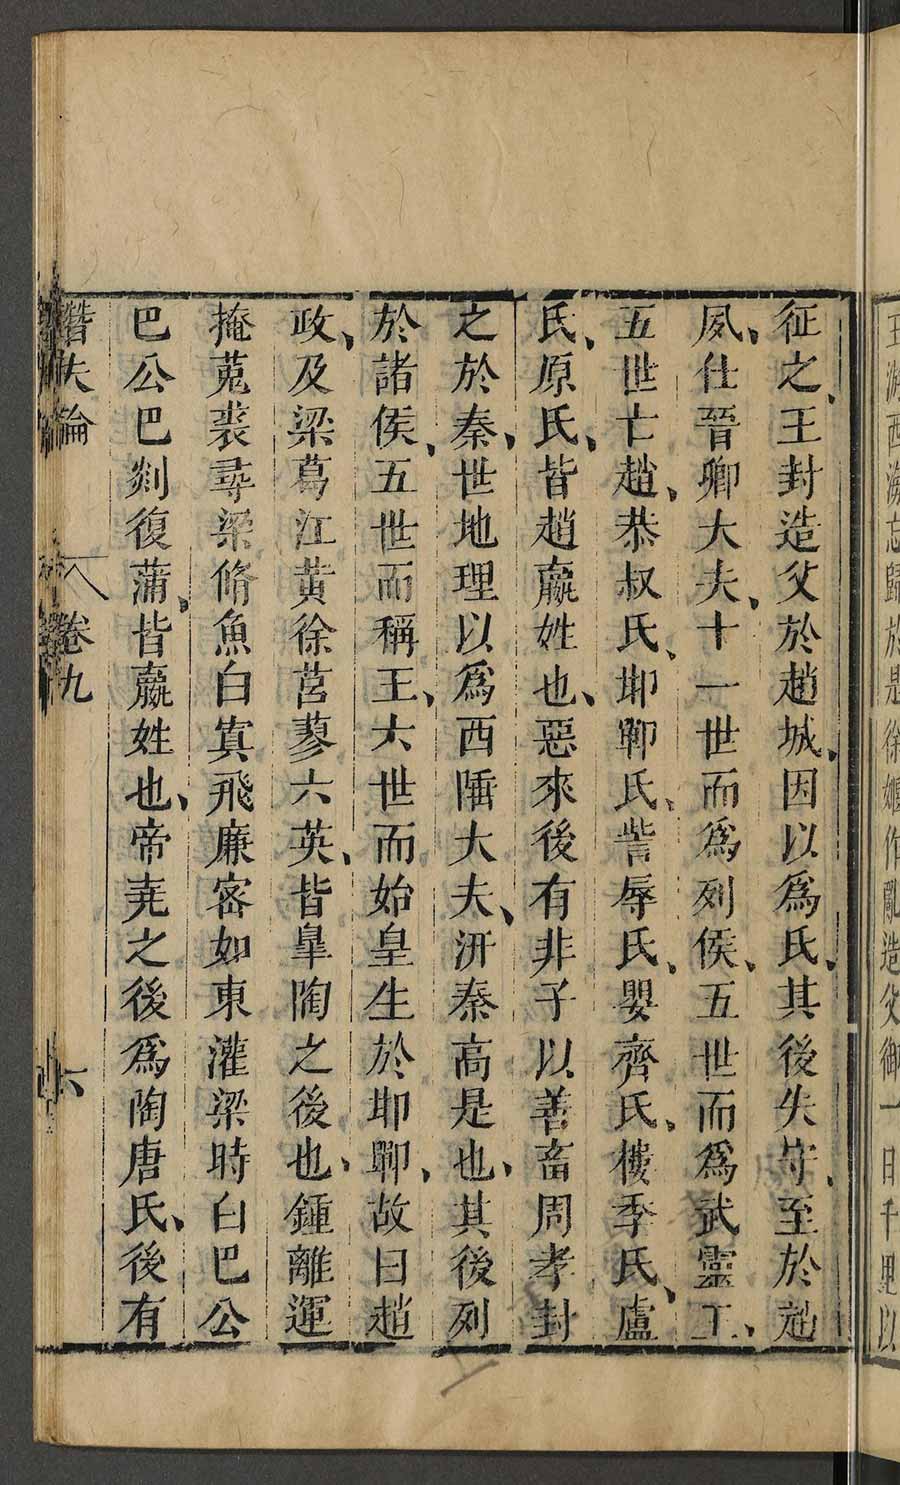 王游西海忘歸於是徐偃作亂造父御一日千里以
征之、王封造父於趙城、因以爲氏、其後失守、至於趙
夙、仕晉卿大夫、十一世而爲列侯、五世而爲武靈王、
五世亡趙、恭叔氏、邯鄲氏、訾辱氏、嬰齊氏、樓季氏、盧
氏、原氏、皆趙嬴姓也、惡來後有非子以善畜周孝封
之於秦、世地理以爲西陲大夫、汧秦高是也、其後列
於諸侯、五世而稱王、六世而始皇生於邯鄲、故曰趙
政、及梁葛江黄徐莒蓼六英、皆臯陶之後也、鍾離運
掩菟裘尋梁脩魚白寘飛廉密如東灌梁時白巴公
巴公巴剡復蒲、皆嬴姓也、帝堯之後爲陶唐氏、後有
潛夫論 卷九 六